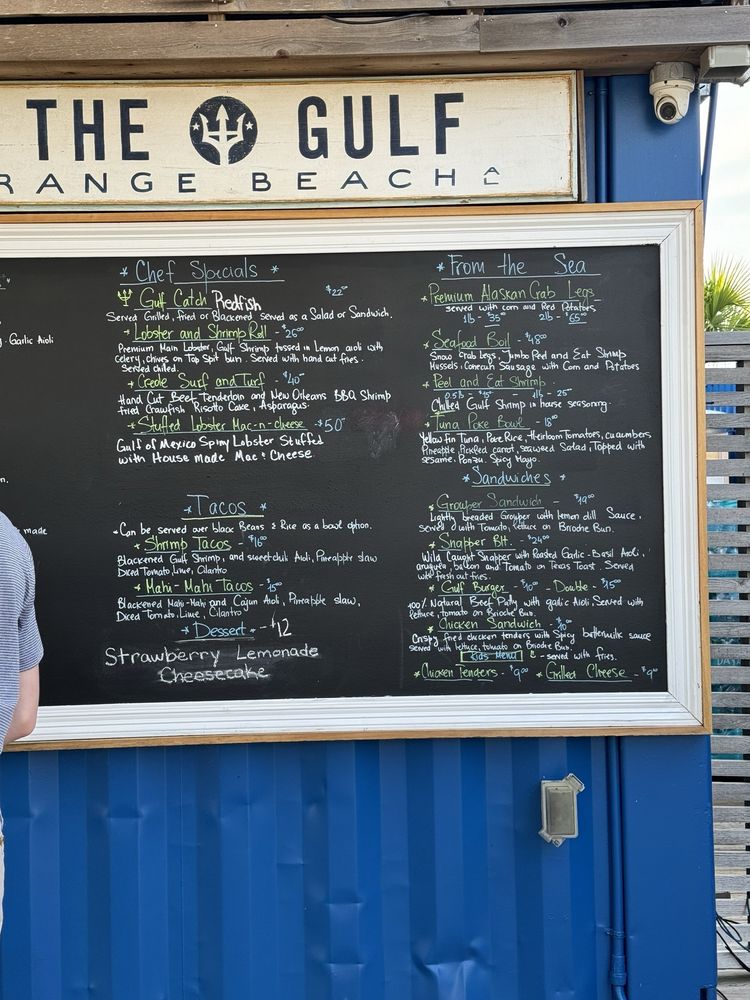 THE GULF
RANGE BEACH AL
Garlic Aioli
made
* Chef Specials *
Gulf Catch Redfish $22
Served Grilled, fried or Blackened. Served as a Salad or Sandwich.
* Lobster and Shrimp Roll - $26
Premium Main Lobster, Gulf Shrimp tossed in Lemon aioli with
celery, chives on Top Split bun. Served with hand cut fries.
Served chilled.
* Creole Surf and Turf - $40
Hand Cut Beef Tenderloin and New Orleans BBQ Shrimp
fried Crawfish Risotto Cake, Asparagus
* Stuffed Lobster Mac-n-cheese - $50
Gulf of Mexico Spiny Lobster Stuffed
with House Made Mac & Cheese
* Tacos *
* Can be served over black Beans & Rice as a bowl option.
* Shrimp Tacos - $16
Blackened Gulf Shrimp, and sweet chili Aioli, Pineapple slaw
Diced Tomato, Lime, Cilantro
* Mahi-Mahi Tacos - $15
Blackened Mahi-Mahi and Cajun Aioli, Pineapple slaw,
Diced Tomato, Lime, Cilantro
* Dessert * - $12
Strawberry Lemonade
Cheesecake
* From the Sea *
* Premium Alaskan Crab Legs
served with corn and Red Potatoes
1lb - $35 2lb - $65
* Seafood Boil - $48
Snow Crab legs, Jumbo Peel and Eat Shrimp
Mussels, Conecuh Sausage with Corn and Potatoes
* Peel and Eat Shrimp
0.5lb - $15 - 1lb - 25
Chilled Gulf Shrimp in house seasoning
* Tuna Poke Bowl - 18
Yellow fin Tuna, Poke Rice, Heirloom Tomatoes, cucumbers
Pineapple, Pickled carrot, seaweed Salad, Topped with
sesame, Ponzu, Spicy Mayo.
* Sandwiches *
* Grouper Sandwich - $19
Lightly breaded Grouper with lemon dill Sauce,
Served with Tomato, lettuce on Brioche Bun.
* Snapper Blt. - $24
Wild Caught Snapper with Roasted Garlic-Basil Aioli,
arugula, bacon and Tomato on Texas Toast. Served
with fresh cut fries.
* Gulf Burger - $10 - Double - $15
100% Natural Beef Patty with garlic aioli, Served with
lettuce, tomato on Brioche Bun.
* Chicken Sandwich - $10
Crispy fried chicken tenders with Spicy buttermilk sauce
served with lettuce, tomato on Brioche Bun.
Kids Menu - served with fries.
* Chicken Tenders - $9 * Grilled Cheese - $9